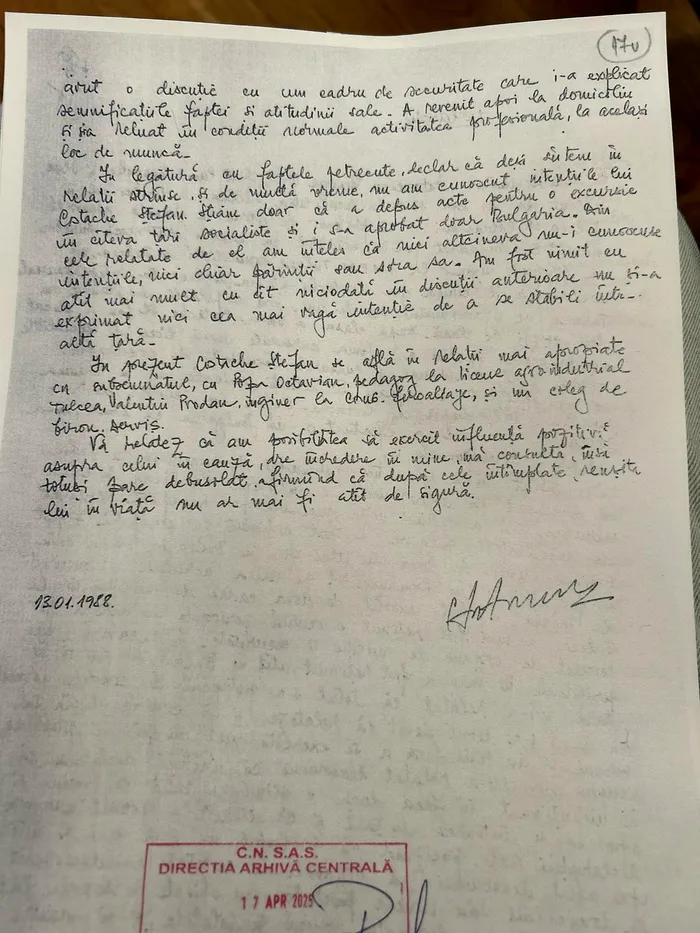 17v
avut o discuție cu un cadru de securitate care i-a explicat
semnificațiile faptei si atitudinii sale. A revenit apoi la domiciliu
și și-a reluat în condiții normale activitatea profesională, la același
loc de muncă.
In legătură cu faptele petrecute, declar că deși sîntem în
relații strînse și de multă vreme, nu am cunoscut intențiile lui
Costache Ștefan. Știam doar că a depus acte pentru o excursie
în cîteva țări socialiste și i s-a aprobat doar Bulgaria. Din
cele relatate de el am înteles că nici altcineva nu-i cunoscuse
intențiile, nici chiar părinții sau sora sa. Am fost uimit cu
atît mai mult cu cît niciodată în discuții anterioare nu și-a
exprimat nici cea mai vagă intenție de a se stabili într-
altă țară.
In prezent Costache Ștefan se află în relații mai apropiate
cu subsemnatul, cu Popa Octavian, pedagog la liceul agroindustrial
Tulcea, Valentin Prodan, inginer la Comb. și un coleg de
birou. servis.
Vă relatez că am posibilitea să exercit influență pozitivă
asupra celui în cauză, are încredere în mine, mă consultă, însă
totuși pare debusolat afirmînd că după cele întîmplate, reușita
lui în viață nu ar mai fi atît de sigură.
13.01.1988.
C.N. S.A.S.
DIRECTIA ARHIVĂ CENTRALĂ
17 APR 2025